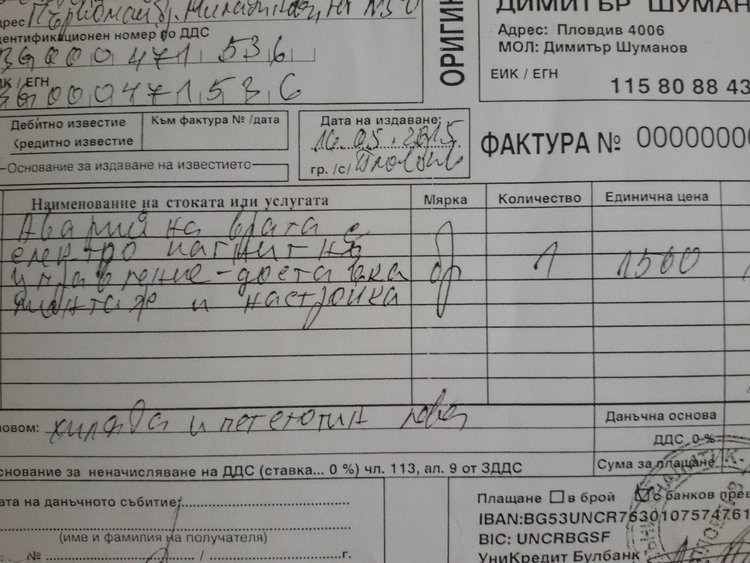 дрес Първомай бр. Миладинови № 50
дентификационен номер по ДДС
BG000471536
ИК / ЕГН
BG000471536
ОРИГИН
ДИМИТЪР ШУМАН
Адрес: Пловдив 4006
МОЛ: Димитър Шуманов
ЕИК / ЕГН
115 80 88 43
Дебитно известие
Кредитно известие
Към фактура № /дата
Основание за издаване на известието
Дата на издаване:
16.05.2015
гр. /с/ Пловдив
ФАКТУРА № 00000000
Наименование на стоката или услугата
Мярка
Количество
Единична цена
Аварийна врата с
електро магнитна
управление - доставка
монтаж и настройка
бр
1
1500
овом: хиляда и петстотин лева
Данъчна основа
ДДС 0 %
Сума за плащане
снование за неначисляване на ДДС (ставка... 0 %) чл. 113, ал. 9 от ЗДДС
ата на данъчното събитие:
(име и фамилия на получателя)
№ / г.
Плащане в брой с банков прев
IBAN:BG53UNCR7630107574761
BIC: UNCRBGSF
УниКредит Булбанк